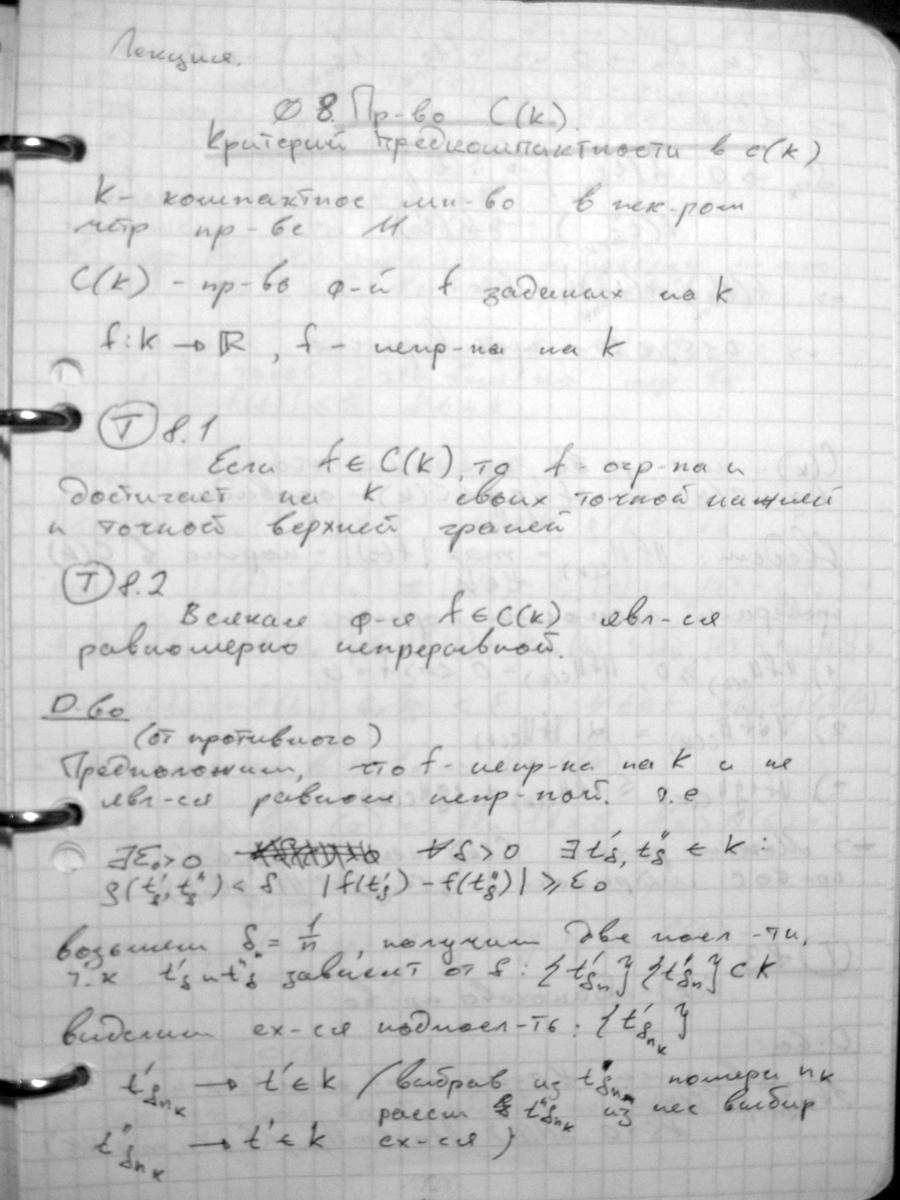 Лекция.
§ 8. Пр-во C(K).
Критерий предкомпактности в C(K)
K - компактное мн-во в нек-ром
метр пр-ве M
C(K) - пр-во ф-й f заданых на K
f: K → ℝ, f - непр-на на K
(T) 8.1
Если f ∈ C(K), то f - огр-на и
достигает на K своих точной нижней
и точной верхней граней
(T) 8.2
Всякая ф-я f ∈ C(K) явл-ся
равномерно непреравной.
D-во
(от противного)
Предположим, что f - непр-на на K и не
явл-ся равном непр-ной. т.е
∃ε₀>0 ∀δ>0 ∃t'_δ, t''_δ ∈ K :
ρ(t'_δ, t''_δ) < δ |f(t'_δ) - f(t''_δ)| ≥ ε₀
возьмем δ_n = 1/n, получим две посл-ти,
т.к t'_δ и t''_δ зависят от δ: {t'_δ_n} {t''_δ_n} ⊂ K
выделим сх-ся подпосл-ть: {t'_δ_n_k}
t'_δ_n_k → t' ∈ K (выбрав из t'_δ_n номера n_k
рассм t''_δ_n_k из нее выбир
t''_δ_n_k → t' ∈ K сх-ся)